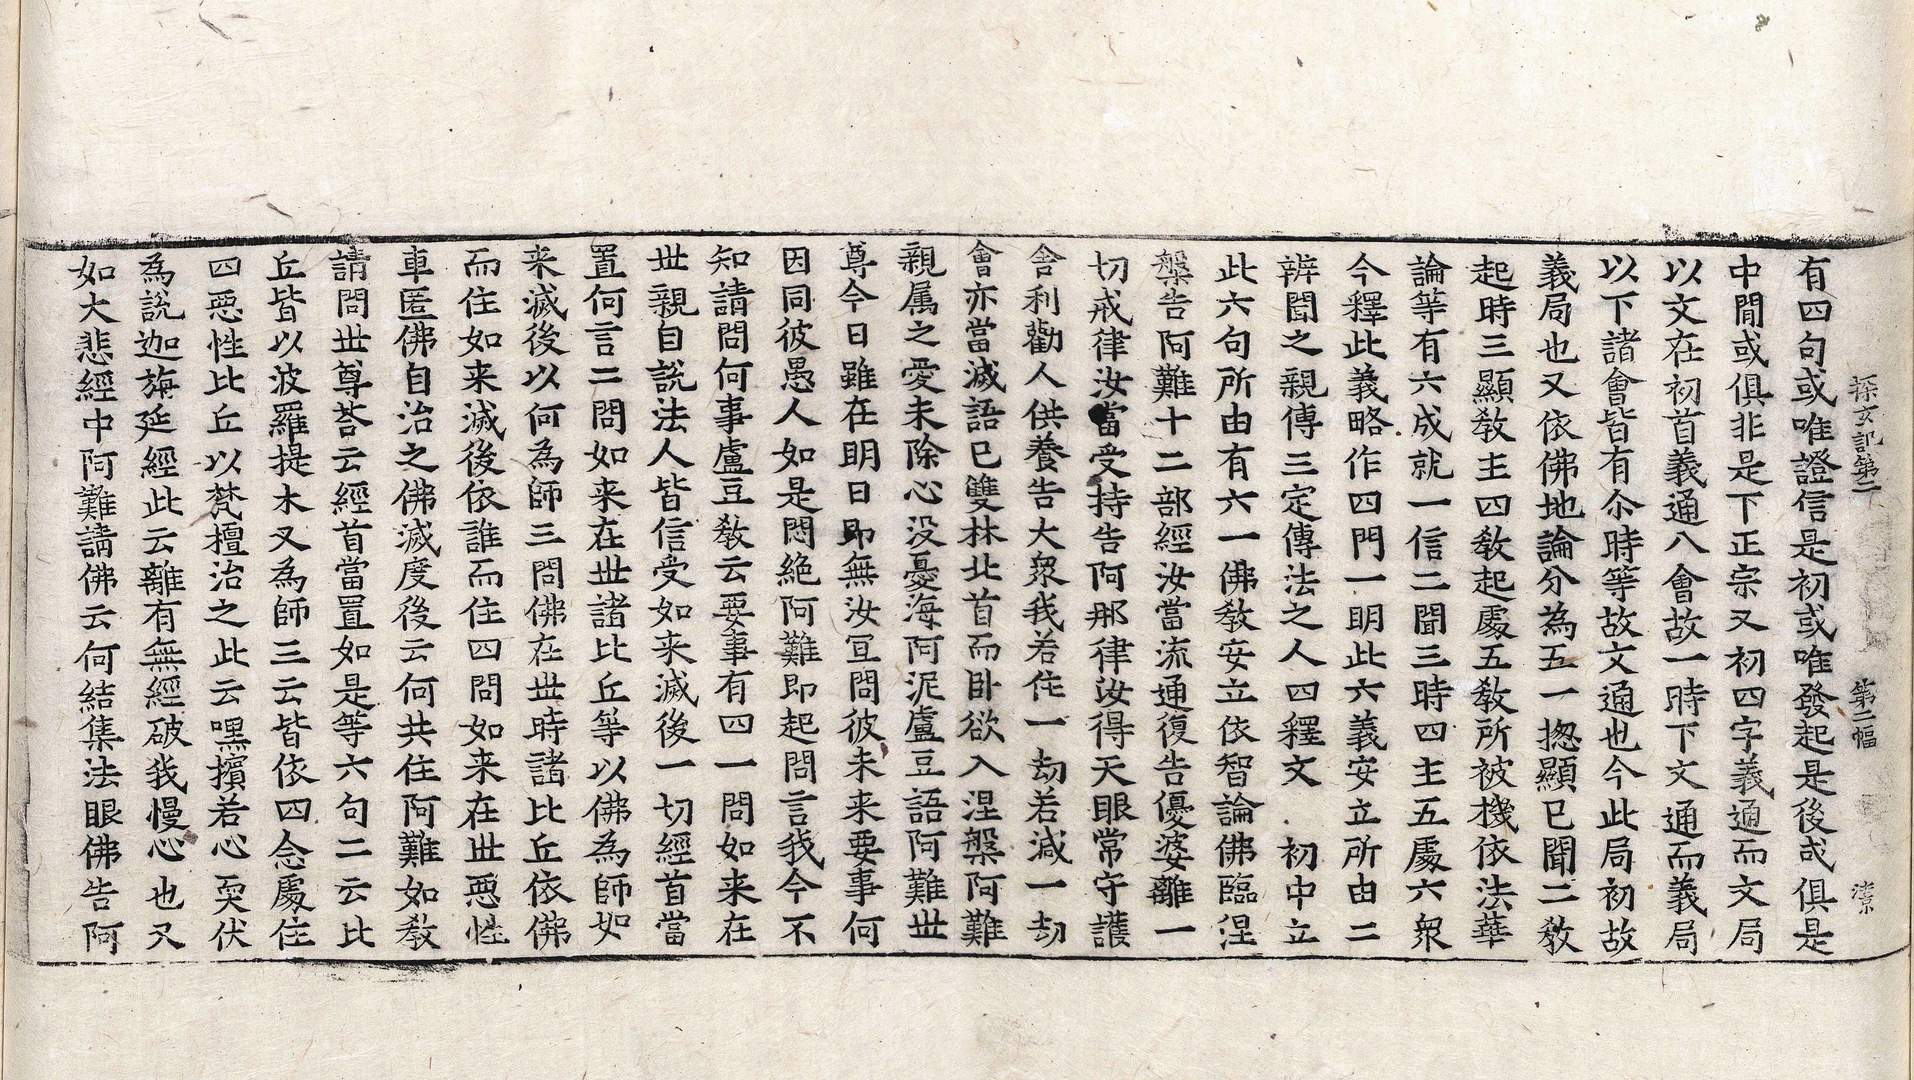 探玄記第二　第二幅　漆
有四句或唯證信是初或唯發起是後或俱是
中間或俱非是下正宗又初四字義通而文局
以文在初首義通八會故一時下文通而義局
以下諸會皆有尒時等故文通也今此局初故
義局也又依佛地論分為五一揔顯已聞二教
起時三顯教主四教起處五教所被機依法華
論等有六成就一信二聞三時四主五處六衆
今釋此義略作四門一明此六義安立所由二
辨聞之親傳三定傳法之人四釋文　初中立
此六句所由有六一佛教安立依智論佛臨涅
槃告阿難十二部經汝當流通復告優婆離一
切戒律汝當受持告阿那律汝得天眼常守護
舎利勸人供養告大衆我若住一劫若減一劫
會亦當滅語已雙林北首而卧欲入涅槃阿難
親属之愛未除心没憂海阿泥盧豆語阿難世
尊今日雖在明日即無汝宜問彼未来要事何
因同彼愚人如是悶絶阿難即起問言我今不
知請問何事盧豆教云要事有四一問如来在
世親自說法人皆信受如来滅後一切經首當
置何言二問如来在世諸比丘等以佛為師如
来滅後以何為師三問佛在世時諸比丘依佛
而住如来滅後依誰而住四問如来在世惡性
車匿佛自治之佛滅度後云何共住阿難如教
請問世尊荅云經首當置如是等六句二云比
丘皆以波羅提木叉為師三云皆依四念處住
四惡性比丘以梵檀治之此云嘿擯若心耎伏
為說迦旃延經此云離有無經破我慢心也又
如大悲經中阿難請佛云何結集法眼佛告阿